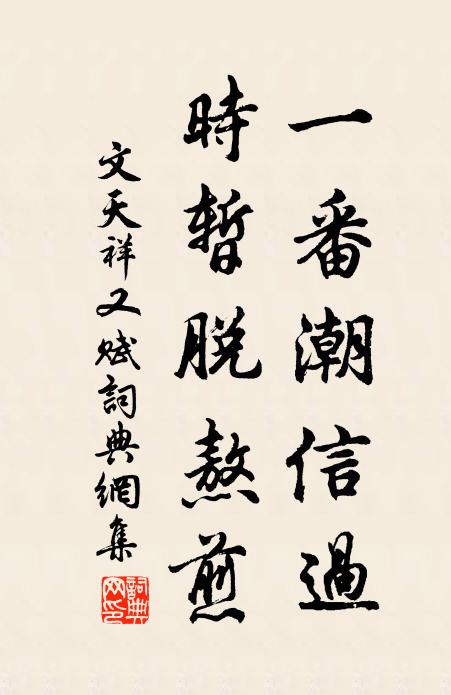 一番潮信過
時暫脱熬煎
文天祥又賦詞典網集
詞典網印